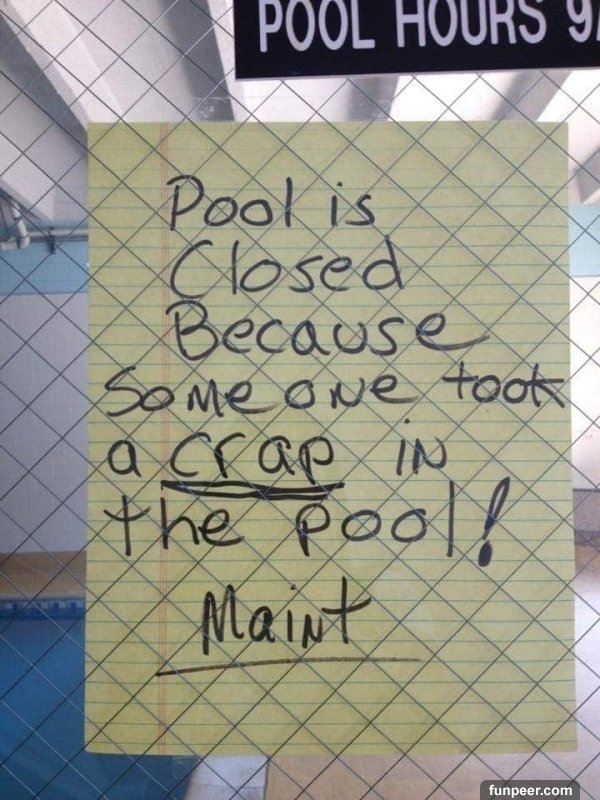 POOL HOURS 9
Pool is
Closed
Because
Some one took
a crap in
the pool!
Maint
funpeer.com